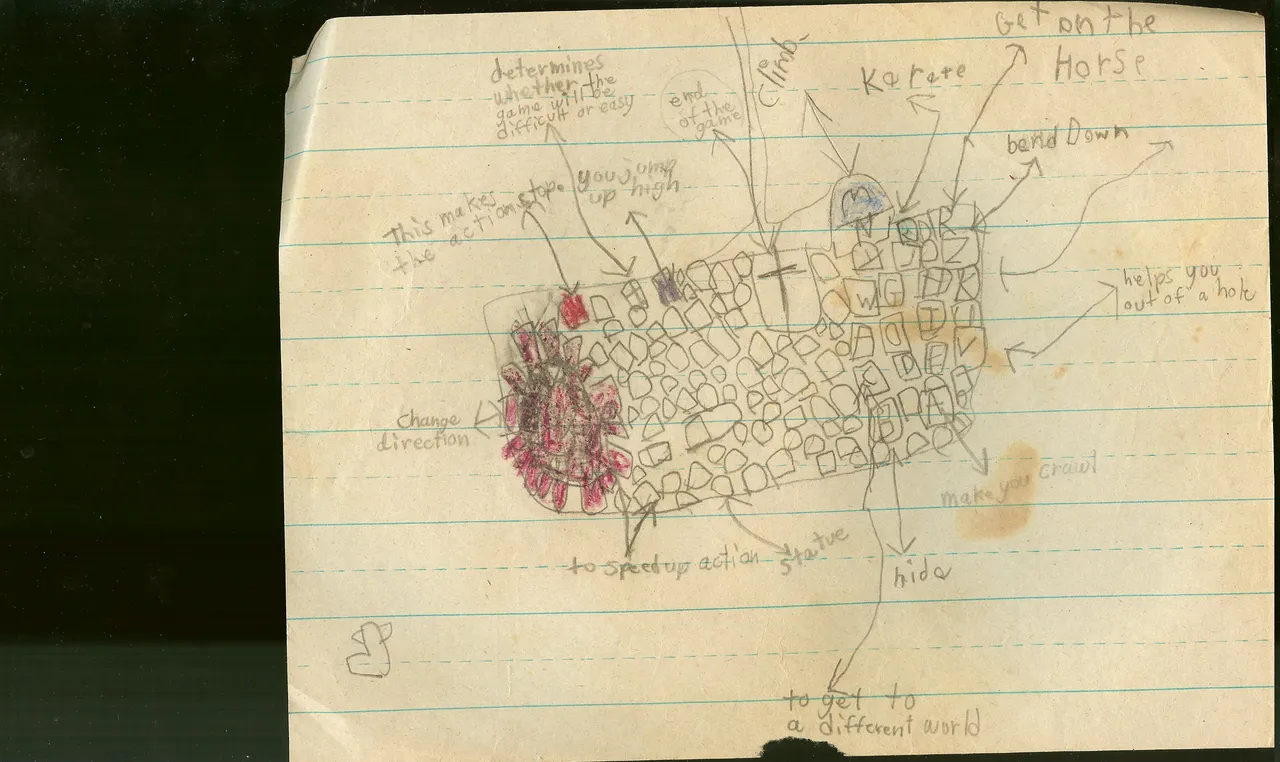 Get on the
Horse
determines
whether the
game will be
difficult or easy
end
of the
game
Climb
Karate
bend Down
This makes
the action stop.
you jump
up high
helps you
out of a hole
Change
direction
make you crawl
to speed up action
statue
hide
to get to
a different world
M
N
R
Z
W G
K
O I
D E
A